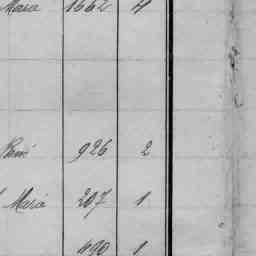 Maria 1662 4
926 2
Maria 207 1
490 1